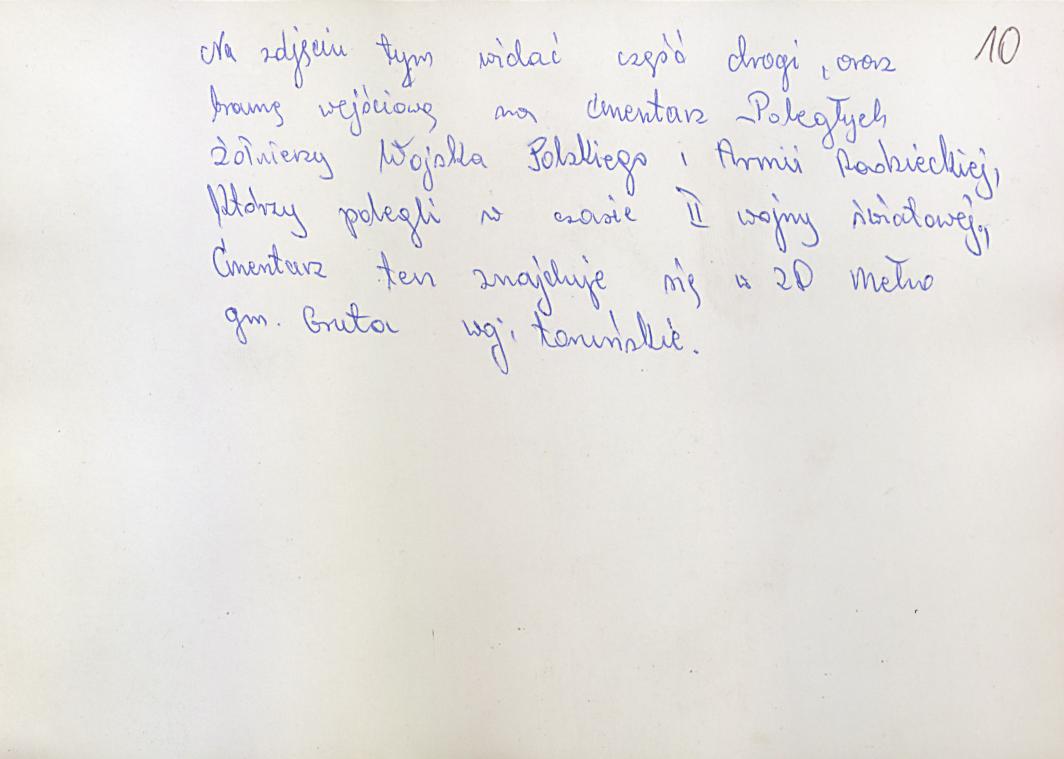 10
Na zdjęciu tym widać część drogi, oraz
bramę wejściową na Cmentarz Poległych
Żołnierzy Wojska Polskiego i Armii Radzieckiej,
Którzy polegli w czasie II wojny światowej,
Cmentarz ten znajduje się w Mełno
gm. Gruta woj. toruńskie.